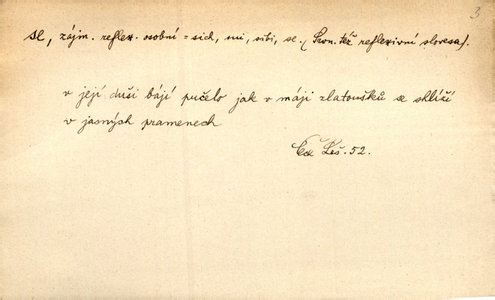 3
se, zájm. reflex. osobní = sich, mi, sibi, se. (Srov. též reflexivní slovesa).
v její duši bájí pučelo jak v máji zlatoušků se shlíží
v jasných pramenech
Čck Leš. 52.